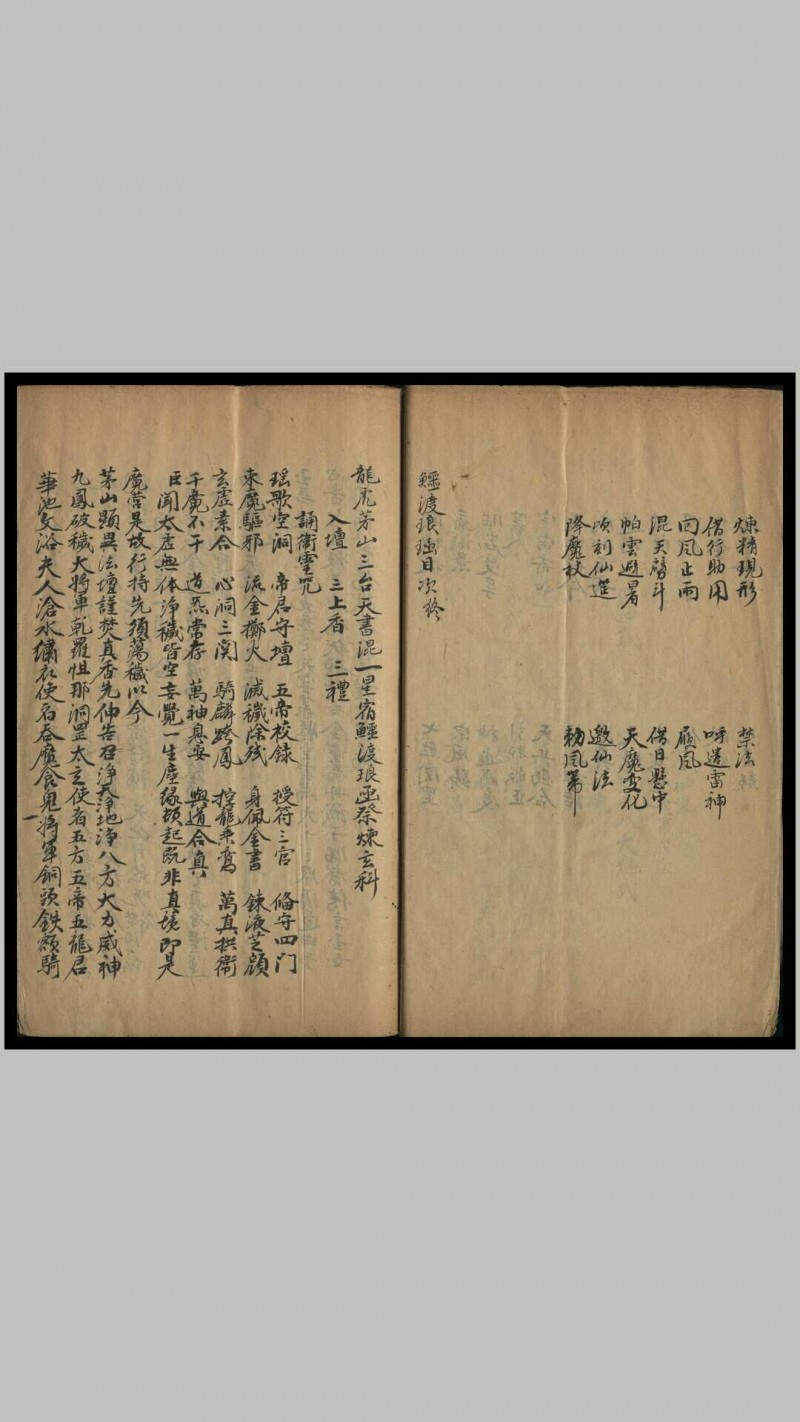 煉精現形　禁法
借行助用　呼遣雷神
回風止雨　順風
混天劈斗　借日懸中
帕雲避暑　天魔变化
頃刻仙莚　邀仙法
降魔杖　勅風筆
鱷渡琅函目次終
龍虎茅山三台天書混一星宿鱷渡琅函祭煉玄科
入壇　三上香　三禮
誦衛靈咒
瑤歌空洞　帝君守壇　五帝校錄　授符三官　俻守四门
束魔驅邪　流金擲火　滅穢除残　身佩金書　鍊液芝顔
玄虛素合　心洞三関　騎麟跨鳳　控龍乘鸾　萬真拱衛
千魔不干　道炁常存　萬神息安　與道合真
臣聞太虛無体淨穢皆空妄覺一生塵縁頓起既非真境即是
魔营是故行持先須蕩穢以今
茅山顕異法壇謹焚真香先伸告召淨天淨地淨八方大力威神
九鳳破穢大將軍乾羅怛那洞罡太玄使者五方五帝五龍君
華池父浴夫人滄水繡衣使者吞魔食鬼將軍銅頭鉄額騎